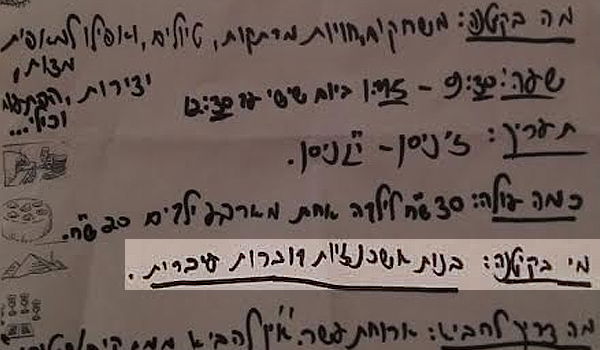 מה בקייטנה: משחקים, חוויות מרתקות, טיולים, ואפילו למאפית
מצות,
יצירות, הפתעות
וכולי...
שעה: 9:30 - 1:45 ביום שישי עד 12:30
תאריך: ז' ניסן - י"ג ניסן.
כמה עולה: 30 ש"ח לילדה אחת מארבע ילדים 20 ש"ח.
מי בקייטנה: בנות אשכנזיות דוברות עיברית.
מה צריך להביא: ארוחת עשר. אין להביא